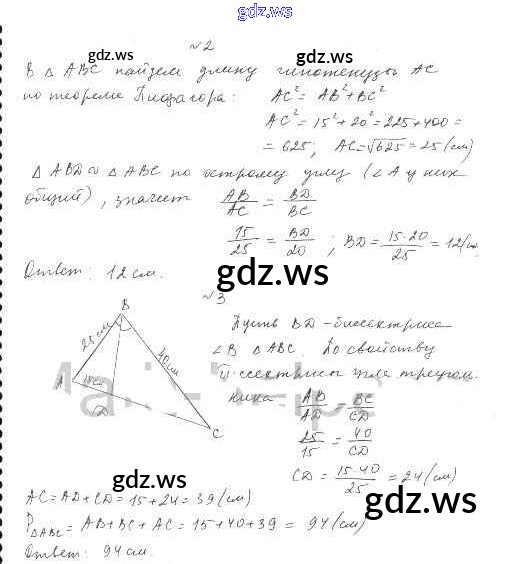 gdz.ws
№2
В △ ABC найдем длину гипотенузы AC
по теореме Пифагора: AC² = AB² + BC²
AC² = 15² + 20² = 225 + 400 =
= 625; AC = √625 = 25 (см)
△ ABD ~ △ ABC по острому углу (∠A у них
общий), значит AB/AC = BD/BC
15/25 = BD/20 ; BD = 15·20/25 = 12 (см.
Ответ: 12 см.
gdz.ws
gdz.ws
gdz.ws
№3
B
25 см
40 см
A
15 см
D
C
Пусть BD - биссектриса
∠B △ ABC. По свойству
биссектрисы угла треугол.
ника AB/AD = BC/CD
25/15 = 40/CD
CD = 15·40/25 = 24 (см)
gdz.ws
gdz.ws
AC = AD + CD = 15 + 24 = 39 (см)
P△ABC = AB + BC + AC = 15 + 40 + 39 = 94 (см)
Ответ: 94 см.